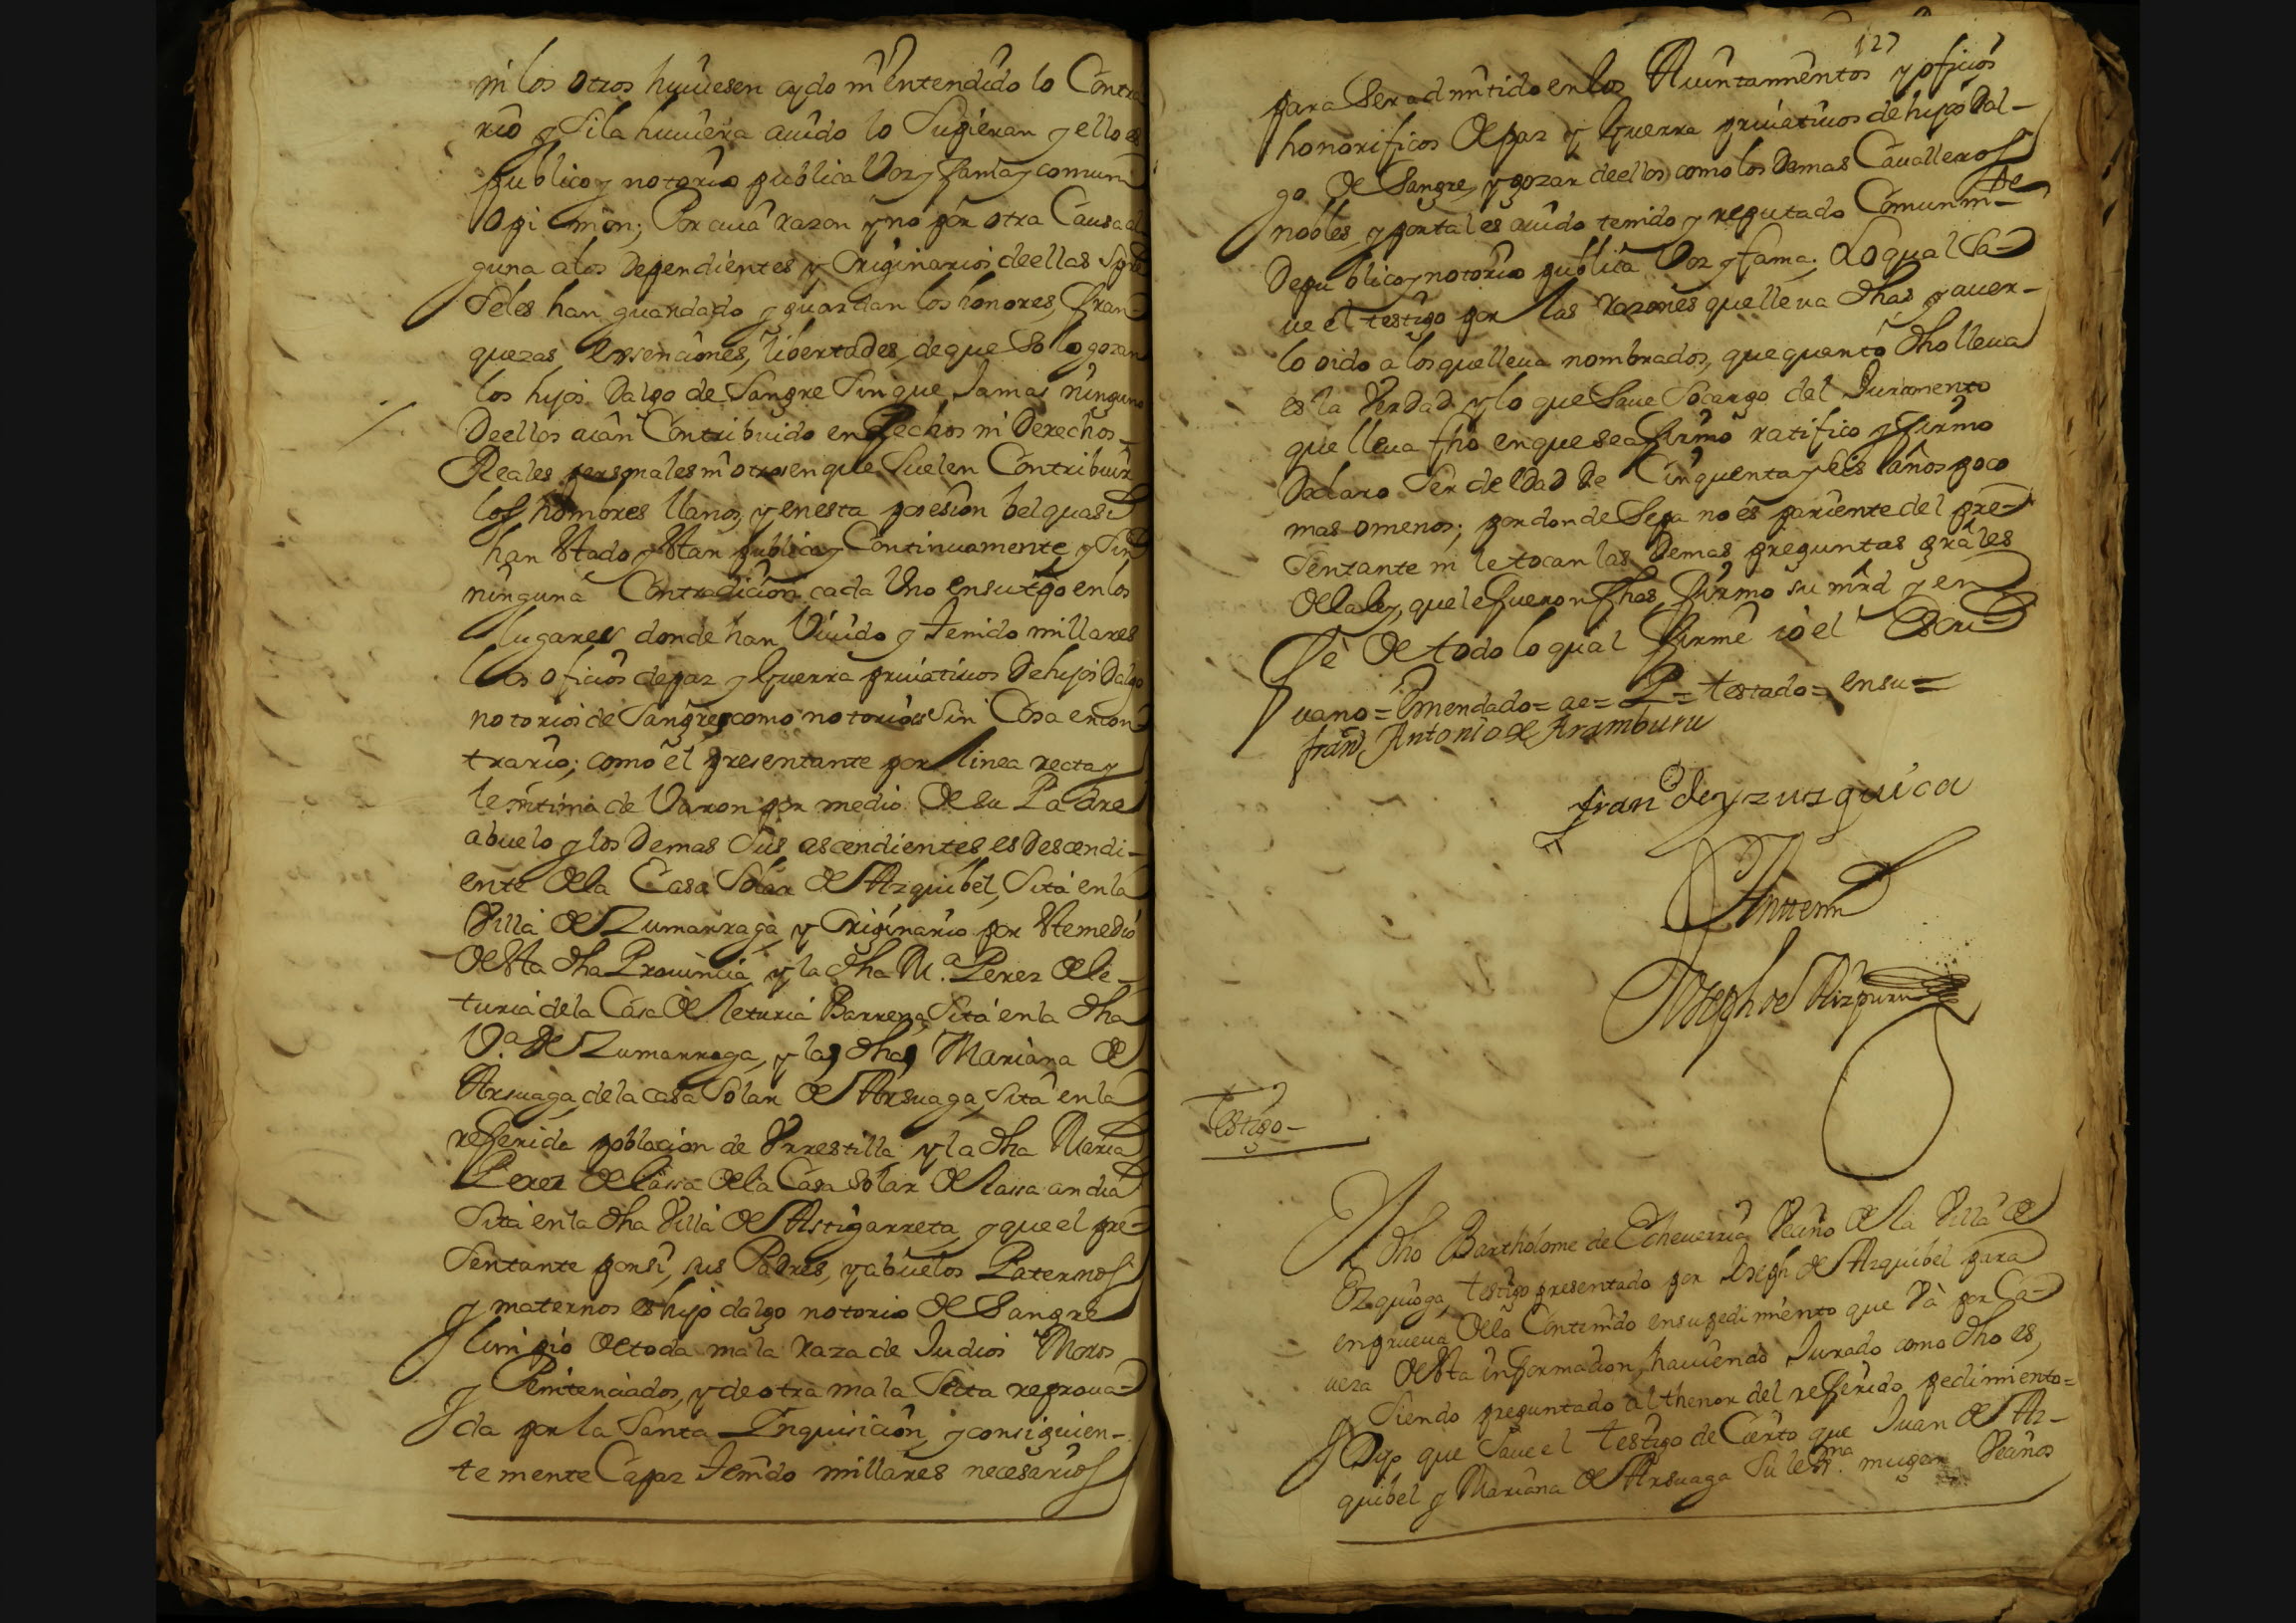 ni los otros huuiesen oydo ni entendido lo Contra
rio y si la huuiera auido lo supieran y ello es
publico y notorio publica Voz y fama y comun
Opinion; Por cuia razon y no por otra Causa al
guna a los Dependientes y Originarios de ellas spre
se les han guardado y guardan los honores, fran-
quezas, essenciones, libertades, de que solo gozan
los hijos Dalgo de Sangre sin que Jamas ninguno
De ellos aian Contribuido en Pechos ni Derechos
Reales personales ni otros en que suelen Contribuir
los hombres llanos, y en esta posesion belquasi
han stado y stan publica y Continuamente y sin
ninguna Contradicion cada Uno en su tpo en los
lugares donde han Viuido y tenido millares
los oficios de paz y Guerra priuatiuos De hijos Dalgo
notorios de Sangre, como notorios sin Cosa en con-
trario; como el presentante por linea recta y
lexitima de Varon por medio de su Padre
abuelo y los Demas sus ascendientes es Descendi-
ente de la Casa Solar de Azquibel, sita en la
Villa de Zumarraga, y Originario por ste medio
de sta dha Prouincia, y la dha M.ª Perez de le-
turia de la Casa de leturia Barrena sita en la dha
V.ª de Zumarraga, y las dhas Mariana de
Arsuaga, de la casa Solar de Arsuaga, sita en la
referida poblacion de Vrrestilla y la dha Maria
Perez de lassa de la Casa Solar de lassa andia
sita en la dha Villa de Astigarreta, y que el pre-
sentante por si, sus Padres, y abuelos Paternos
y maternos es hijo dalgo notorio de Sangre
limpio de toda mala raza de Judios Moros
y Penitenciados, y de otra mala secta reproua-
da por la Santa Inquisicion, y consiguien-
temente Capaz tenido millares necesarios
127
para ser admitido en los Aiuntamientos y oficios
honorificos de paz y Guerra priuatiuos de hijos Dal-
go de Sangre, y gozar de ellos como los Demas Caualleros
nobles, y por tal es auido tenido y reputado Comunmte
De publico y notorio publica Voz y fama; Lo qual sa-
ue el testigo por las razones que lleua dhas y auer-
lo oido a los que lleua nombrados, que quanto dho lleua
es la Verdad y lo que saue so cargo del Juramento
que lleua fho en que se afirmo ratifico y firmo
Declaro ser de edad de Cinquenta y seis años poco
mas o menos; por donde sepa no es pariente del pre-
sentante ni le tocan las Demas preguntas grales
de la ley, que le fueron fhas, firmo su mrd y en
fe de todo lo qual firme io el Escri-
uano = Emendado = ae = P = testado = en su =
fran.co Antonio de Aramburu
fran.co de yzuzquiça
Antemi
Joseph de Aizpuru
Testigo-
El dho Bartholome de Echeuerria Vezino de la Villa de
Ezquioga, testigo presentado por Joseph de Azquibel para
en prueua de lo Contenido en su pedimiento que Va por Ca-
ueza de sta informacion, hauiendo Jurado como dho es,
y siendo preguntado al thenor del referido pedimiento =
Dijo que saue el testigo de Cierto que Juan de Az-
quibel y Mariana de Arsuaga su lexma muger Vezinos